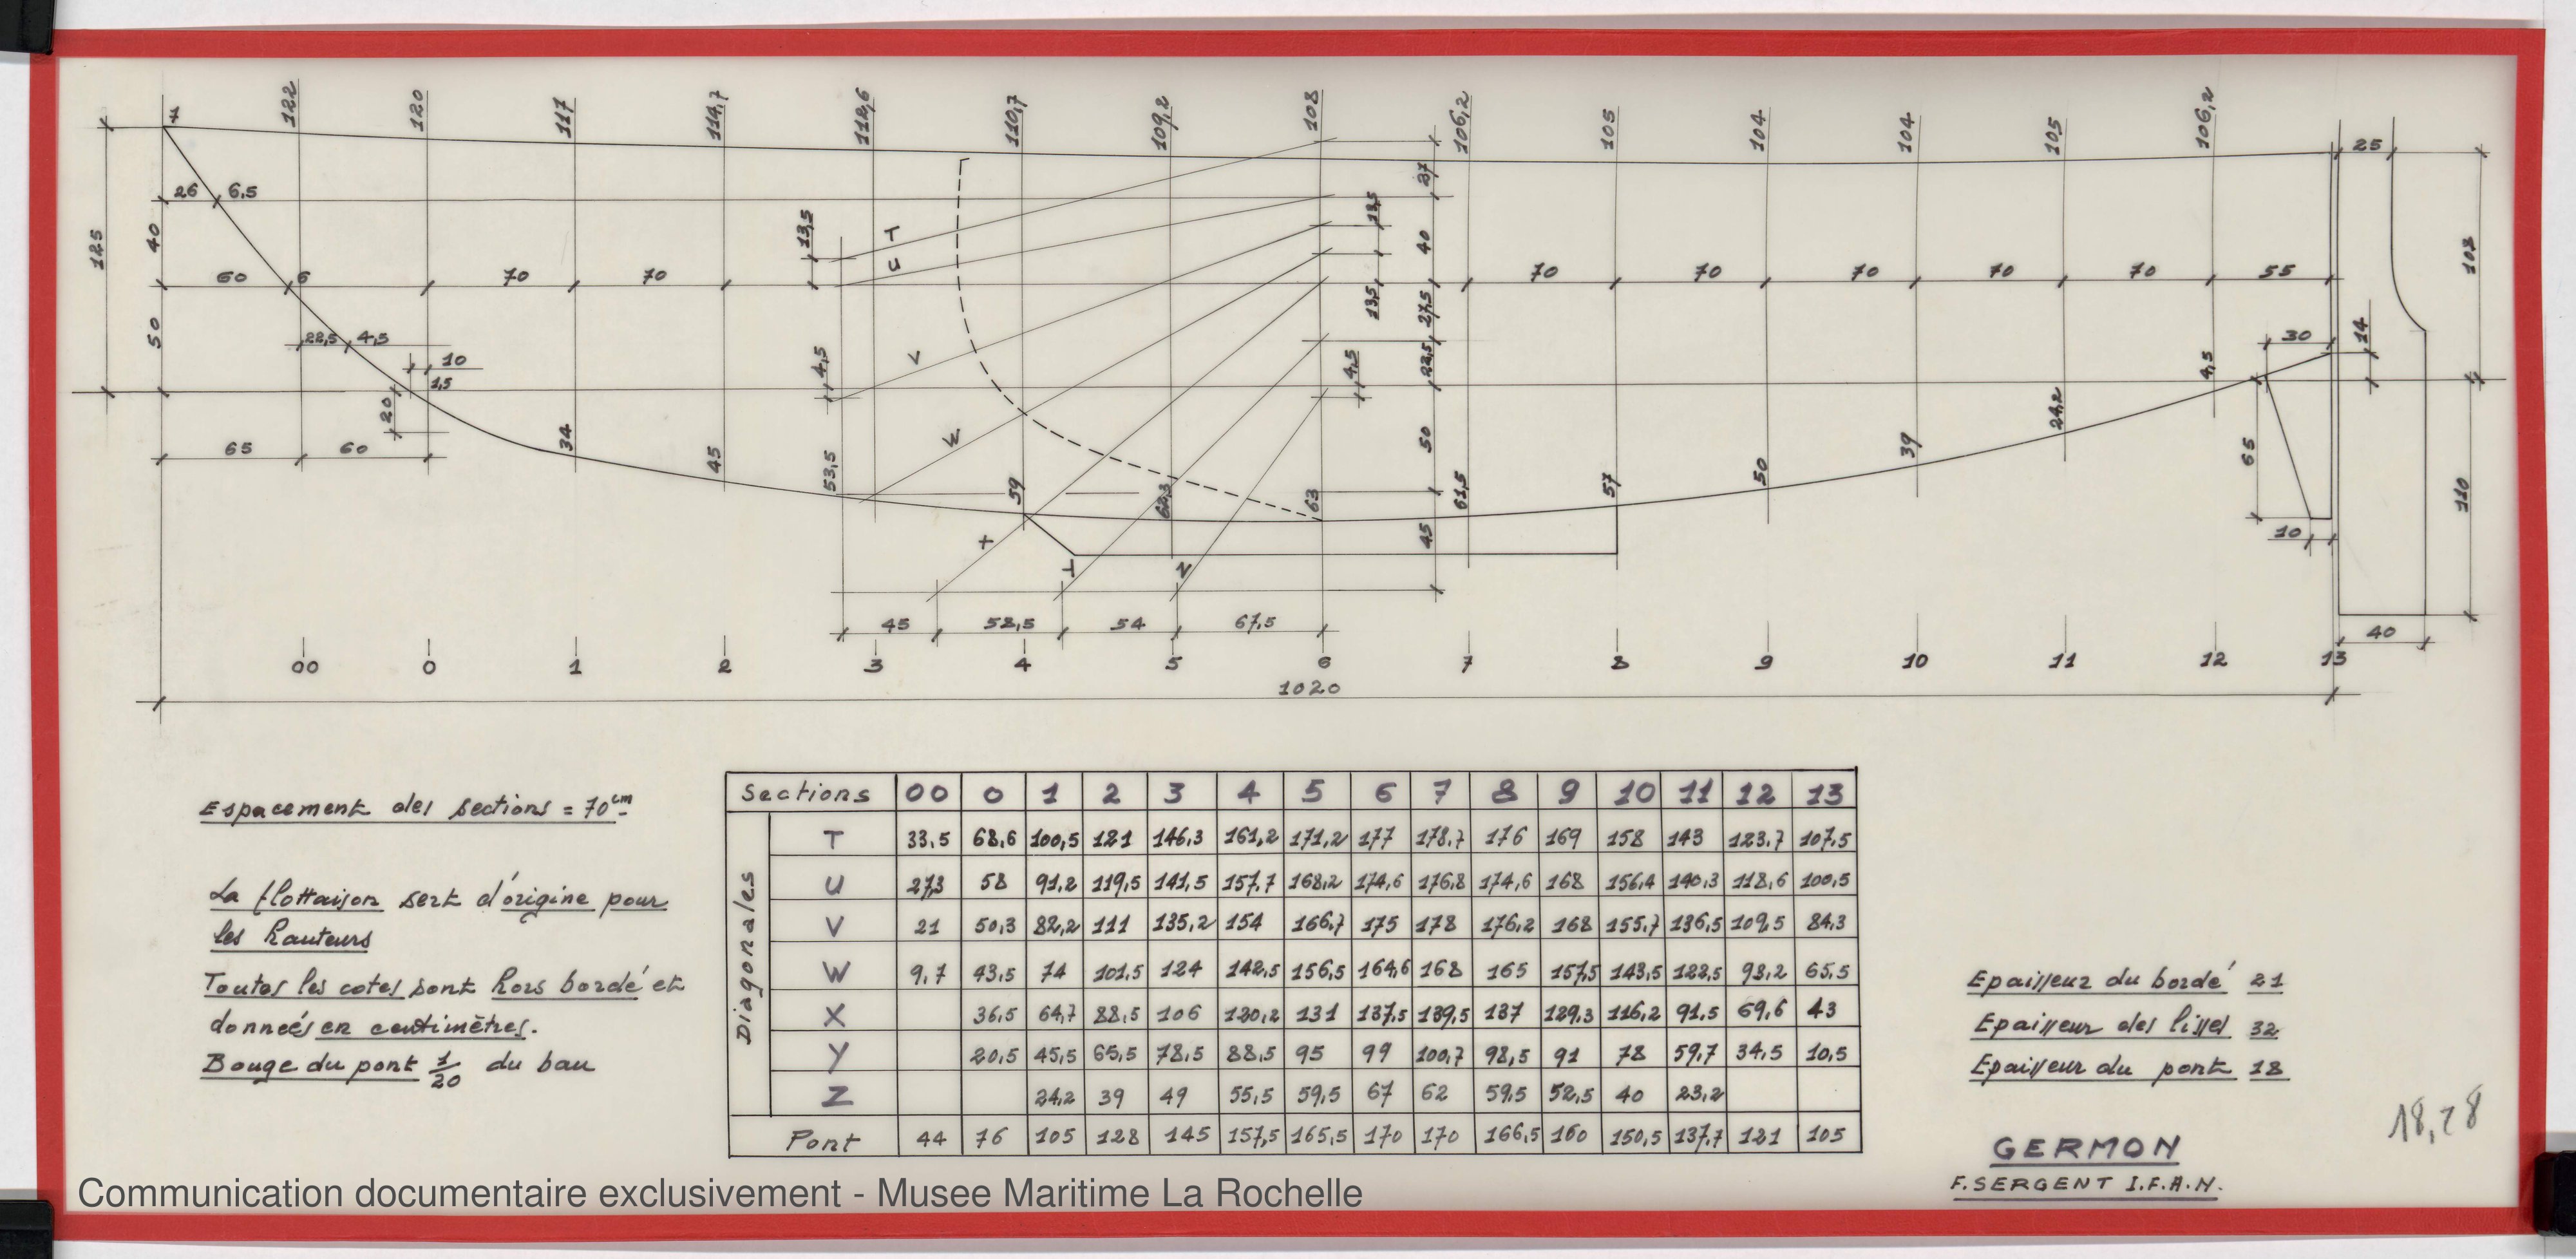 122
120
117
114,7
112,6
110,7
109,2
108
106,2
105
104
104
105
106,2
25
26 6,5
125
40
50
60 6
70 70
13,5
T
U
V
W
X
Y
Z
37
13,5
40
13,5
27,5
22,5
4,5
50
45
70 70 70 70 70 55
102
14
30
22,5 4,5
10
1,5
20
65 60
4,5
34
45
53,5
59
63
61,5
57
50
39
24,2
4,5
65
10
110
40
45 58,5 54 67,5
00 0 1 2 3 4 5 6 7 8 9 10 11 12 13
1020
Espacement des sections = 70 cm
La flottaison sert d'origine pour
les hauteurs
Toutes les cotes sont hors bordé et
données en centimètres.
Bouge du pont 1/20 du bau
Sections 00 0 1 2 3 4 5 6 7 8 9 10 11 12 13
Diagonales
T 33,5 68,6 100,5 121 146,3 161,2 171,2 177 178,7 176 169 158 143 123,7 107,5
U 27,3 58 91,2 119,5 141,5 157,7 168,2 174,6 176,8 174,6 168 156,4 140,3 118,6 100,5
V 21 50,3 82,2 111 135,2 154 166,7 175 178 176,2 168 155,7 136,5 109,5 84,3
W 9,7 43,5 74 101,5 124 142,5 156,5 164,6 168 165 157,5 143,5 122,5 93,2 65,5
X 36,5 64,7 88,5 106 120,2 131 137,5 139,5 137 129,3 116,2 91,5 69,6 43
Y 20,5 45,5 65,5 78,5 88,5 95 99 100,7 98,5 91 78 59,7 34,5 10,5
Z 24,2 39 49 55,5 59,5 67 62 59,5 52,5 40 23,2
Pont 44 76 105 128 145 157,5 165,5 170 170 166,5 160 150,5 137,7 121 105
Epaisseur du bordé 21
Epaisseur des lisses 32
Epaisseur du pont 18
GERMON
F. SERGENT I.F.A.N.
Communication documentaire exclusivement - Musee Maritime La Rochelle